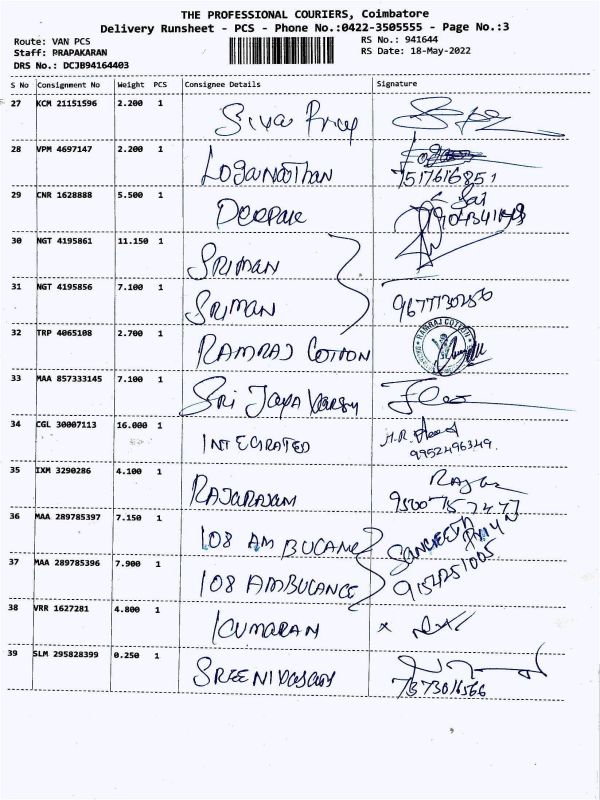 THE PROFESSIONAL COURIERS, Coimbatore
Delivery Runsheet - PCS - Phone No.:0422-3505555 - Page No.:3
Route: VAN PCS RS No.: 941644
Staff: PRAPAKARAN RS Date: 18-May-2022
DRS No.: DCJB94164403
S No Consignment No Weight PCS Consignee Details Signature
27 KCM 21151596 2.200 1 Siva Priya
28 VPM 4697147 2.200 1 Loganathan
7517616851
29 CNR 1628888 5.500 1 Deepak
30 NGT 4195861 11.150 1 SRIMAN
31 NGT 4195856 7.100 1 SRIMAN 9677730250
32 TRP 4065108 2.700 1 RAMRAJ COTTON RAMRAJ COTTON
33 MAA 857333145 7.100 1 Sri Jaya
34 CGL 30007113 16.000 1 INTEGRATED
9952496349.
35 IXM 3290286 4.100 1 RAJARAJAM
36 MAA 289785397 7.150 1 108 AMBULANCE SANGEETA
37 MAA 289785396 7.900 1 108 AMBULANCE 9154251005
38 VRR 1627281 4.800 1 KUMARAN x
39 SLM 295828399 0.250 1 SREENIVASAN
7373016566